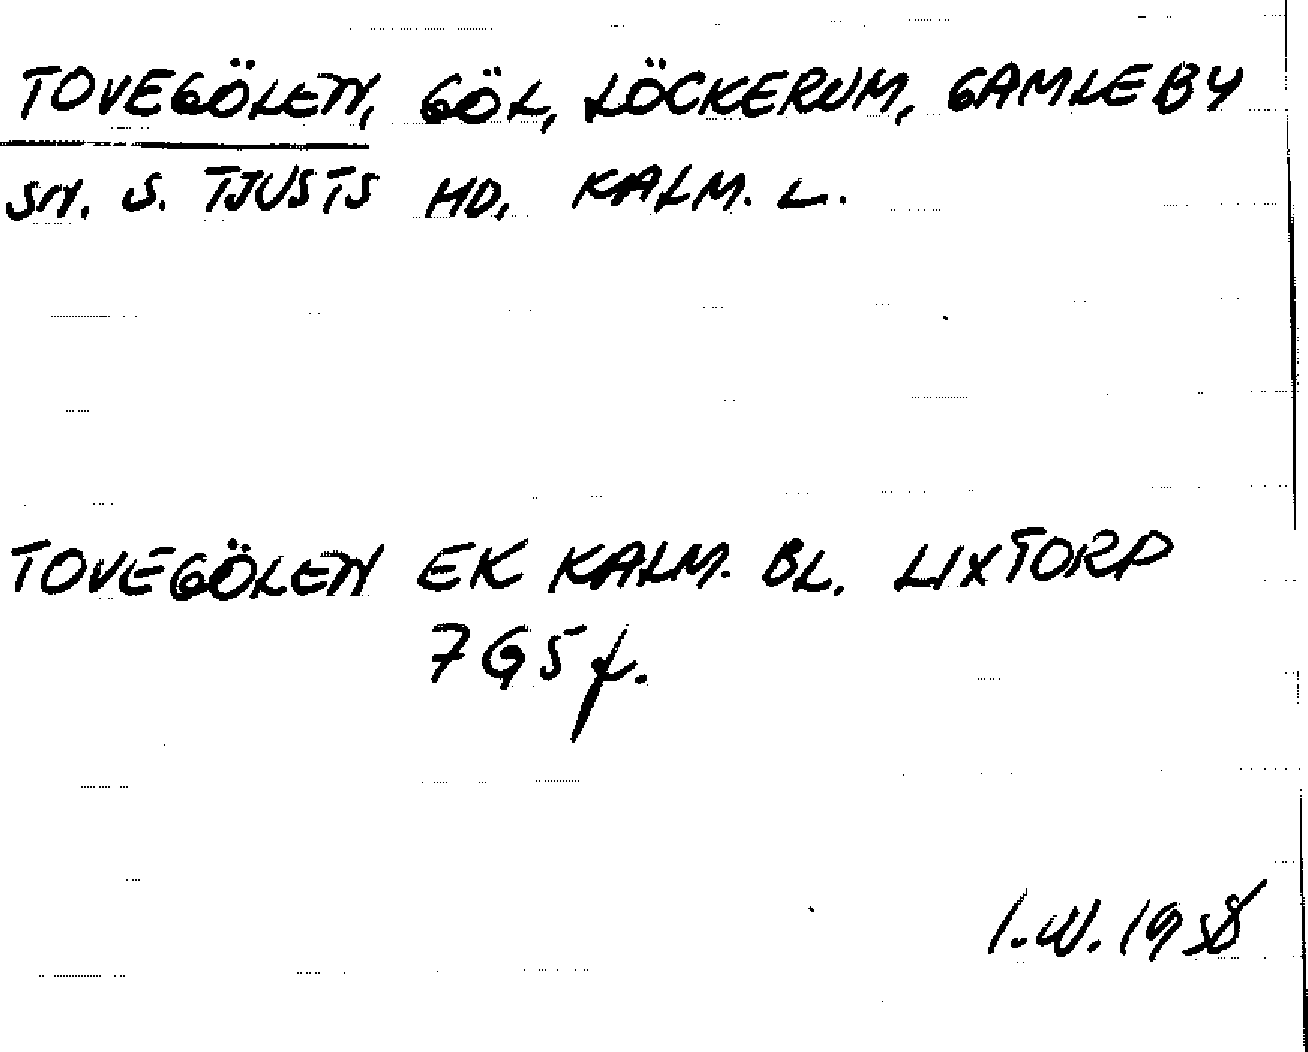 TOVEGÖLEN, GÖL, LÖCKERUM, GAMLEBY
SN. S. TJUSTS HD, KALM. L.
TOVEGÖLEN EK KALM. BL. LIXTORP
7G5f.
I.W. 1958